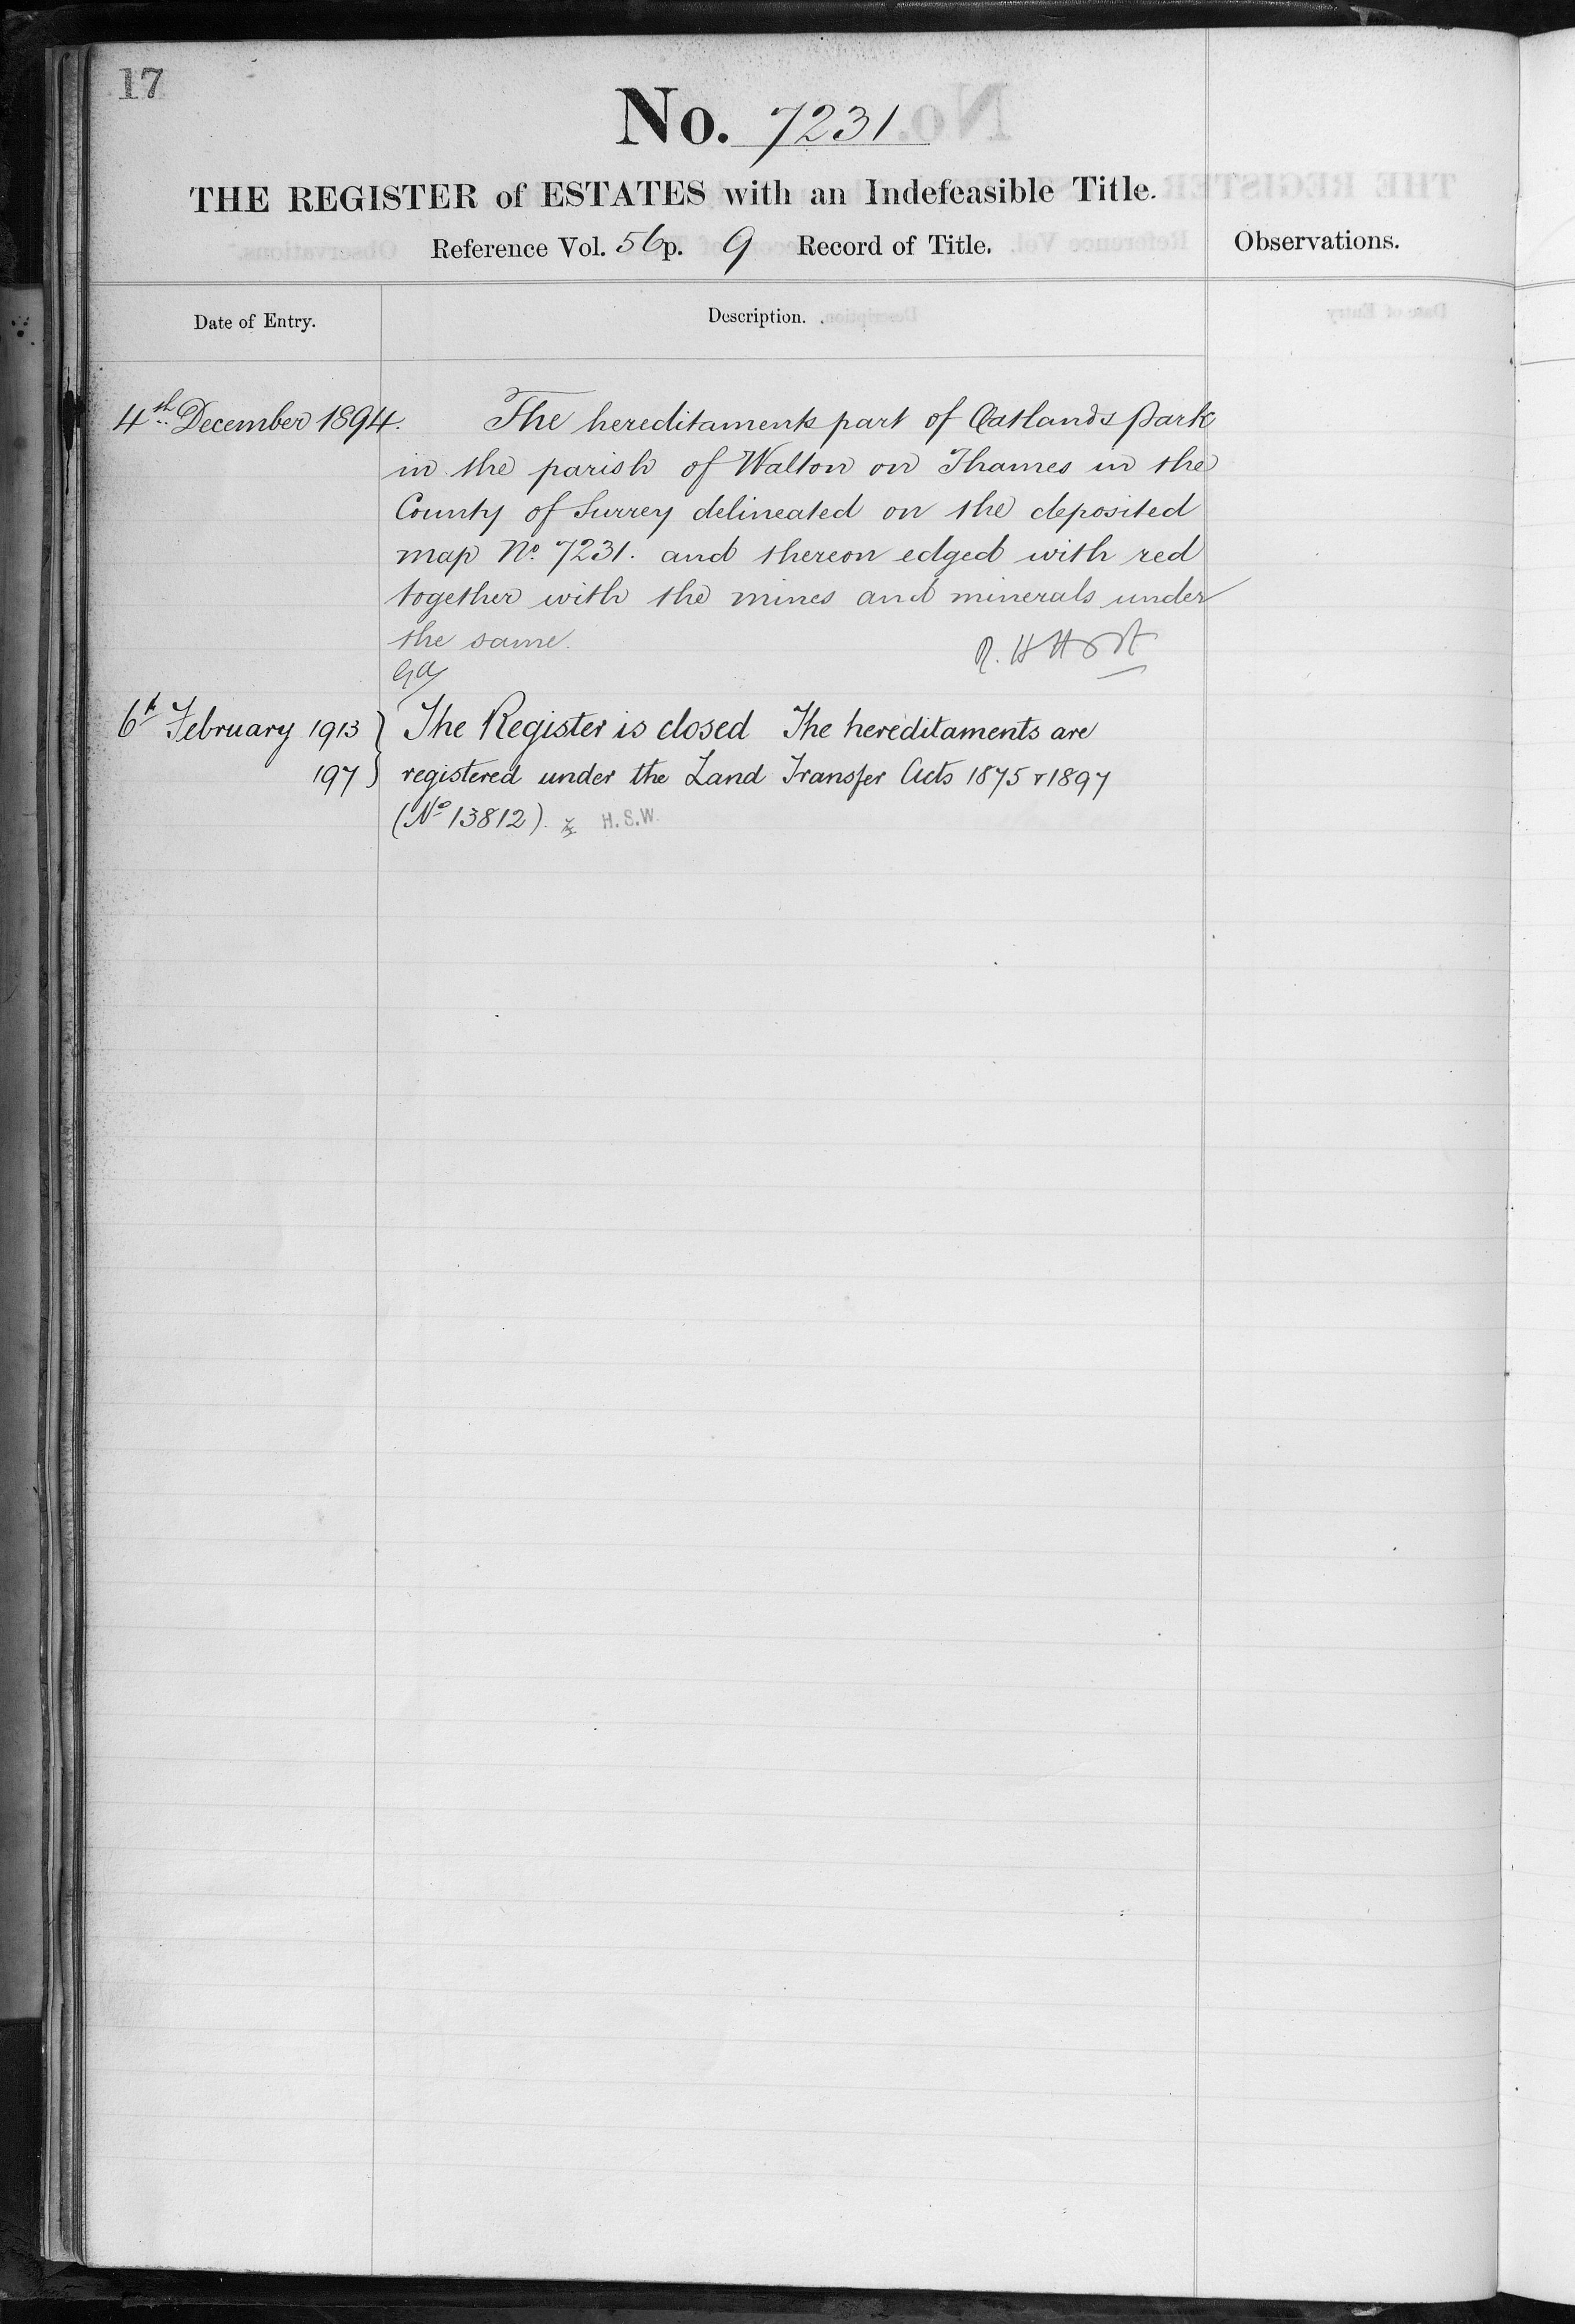 17
No. 7231
THE REGISTER of ESTATES with an Indefeasible Title.
Reference Vol. 56 p. 9 Record of Title.
Observations.
Date of Entry.
Description.
4th December 1894.
The hereditaments part of Oatlands Park
in the parish of Walton on Thames in the
County of Surrey delineated on the deposited
map No. 7231. and thereon edged with red
together with the mines and minerals under
the same.
6th February 1913
197
The Register is closed The hereditaments are
registered under the Land Transfer Acts 1875 & 1897
(No 13812). H.S.W.